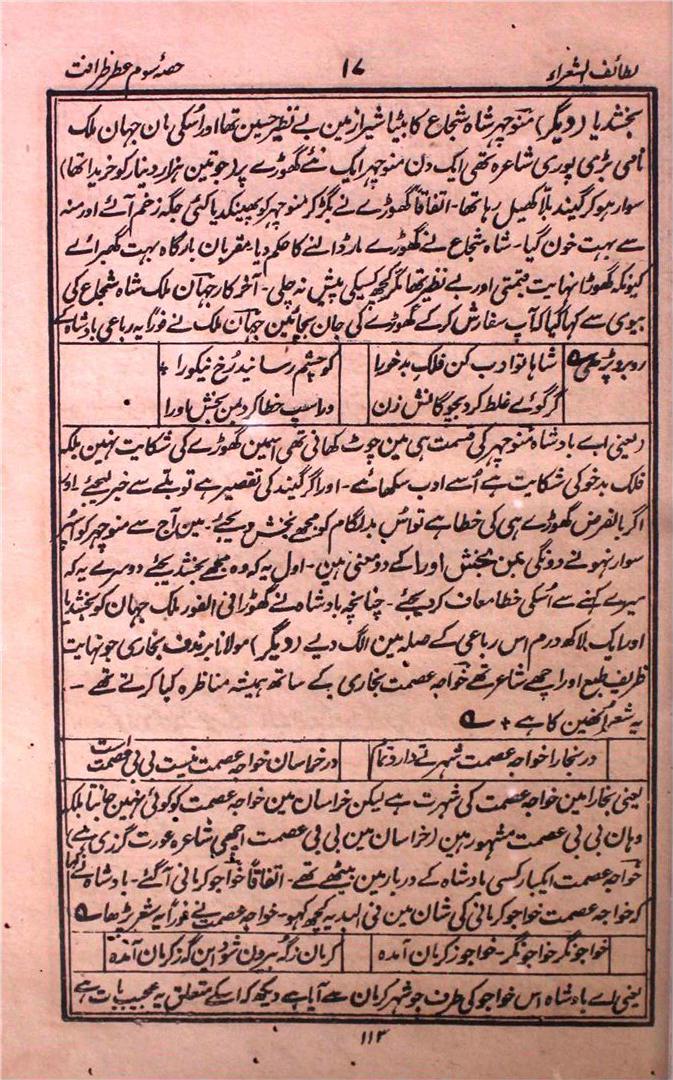 لطائف الشعراء ۱۷ حصۂ سوم عطر ظرافت
بخشدیا (دیگر) منوچہر شاہ شجاع کا بیٹا شیراز مین بے نظیر حسین تھا اور اُسکی مان جہان ملک
نامی بڑی پوری شاعرہ تھی ایک دن منوچہر ایک نئے گھوڑے پر (جو تین ہزار دینار کو خریدا تھا)
سوار ہو کر گیند بلّا کھیل رہا تھا۔ اتفاقاً گھوڑے نے بگڑ کر منوچہر کو پھینکدیا کئی جگہ زخم آئے اور منہ
سے بہت خون گیا۔ شاہ شجاع نے گھوڑے مار ڈالنے کا حکم دیا مقربان بارگاہ بہت گھبرائے
کیونکہ گھوڑا نہایت قیمتی اور بے نظیر تھا مگر کچھ کسیکی پیش نہ چلی۔ آخر کار جہان ملک شاہ شجاع کی
بیوی سے کہا گیا کہ آپ سفارش کر کے گھوڑے کی جان بچائین جہان ملک نے فوراً یہ رباعی بادشاہ کے
روبرو پڑھی شاہا تو ادب کن فلک بدخو را کو چشم رسانید رُخ نیکو را
گر گوئے غلط کرد بچوگانش زن ور اسپ خطا کرد بمن بخش اورا
(یعنی اے بادشاہ منوچہر کی قسمت ہی مین چوٹ کھانی تھی اسمین گھوڑے کی شکایت نہین بلکہ
فلک بدخو کی شکایت ہے اُسے ادب سکھائے۔ اور اگر گیند کی تقصیر ہے تو بلّے سے خبر لیجئے اور
اگر بالفرض گھوڑے ہی کی خطا ہے تو اُس بدلگام کو مجھے بخش دیجئے۔ مین آج سے منوچہر کو اسپر
سوار نہونے دونگی بمن بخش اورا کے دو معنی ہین۔ اول یہ کہ وہ مجھے بخشدیجئے دوسرے یہ کہ
میرے کہنے سے اُسکی خطا معاف کر دیجئے۔ چنانچہ بادشاہ نے گھوڑا فی الفور ملک جہان کو بخشدیا
اور ایک لاکھ درم اس رباعی کے صلہ مین الگ دیے (دیگر) مولانا برندق بخاری جو نہایت
ظریف طبع اور اچھے شاعر تھے خواجہ عصمت بخاری کے ساتھ ہمیشہ مناظرہ کیا کرتے تھے۔
یہ شعر اُنھین کا ہے
در بخارا خواجہ عصمت شہرتے دارد تمام در خراسان خواجہ عصمت نیست بی بی عصمت است
یعنی بخارا مین خواجہ عصمت کی شہرت ہے لیکن خراسان مین خواجہ عصمت کو کوئی نہین جانتا بلکہ
وہان بی بی عصمت مشہور ہین (خراسان مین بی بی عصمت اچھی شاعرہ عورت گزری ہے)
خواجہ عصمت ایکبار کسی بادشاہ کے دربار مین بیٹھے تھے۔ اتفاقاً خواجو کرمانی آ گئے۔ بادشاہ نے کہا
کہ خواجہ عصمت خواجو کرمانی کی شان مین فی البدیہ کچھ کہو۔ خواجہ عصمت نے فوراً یہ شعر پڑھا
خواجو نگر خواجو نگر۔ خواجو ز کرمان آمدہ کرمان ز گہ بیرون شود این گہ ز کرمان آمدہ
یعنی اے بادشاہ اس خواجو کی طرف جو شہر کرمان سے آیا ہے دیکھ کہ اسکے متعلق یہ عجیب بات ہے
۱۱۳